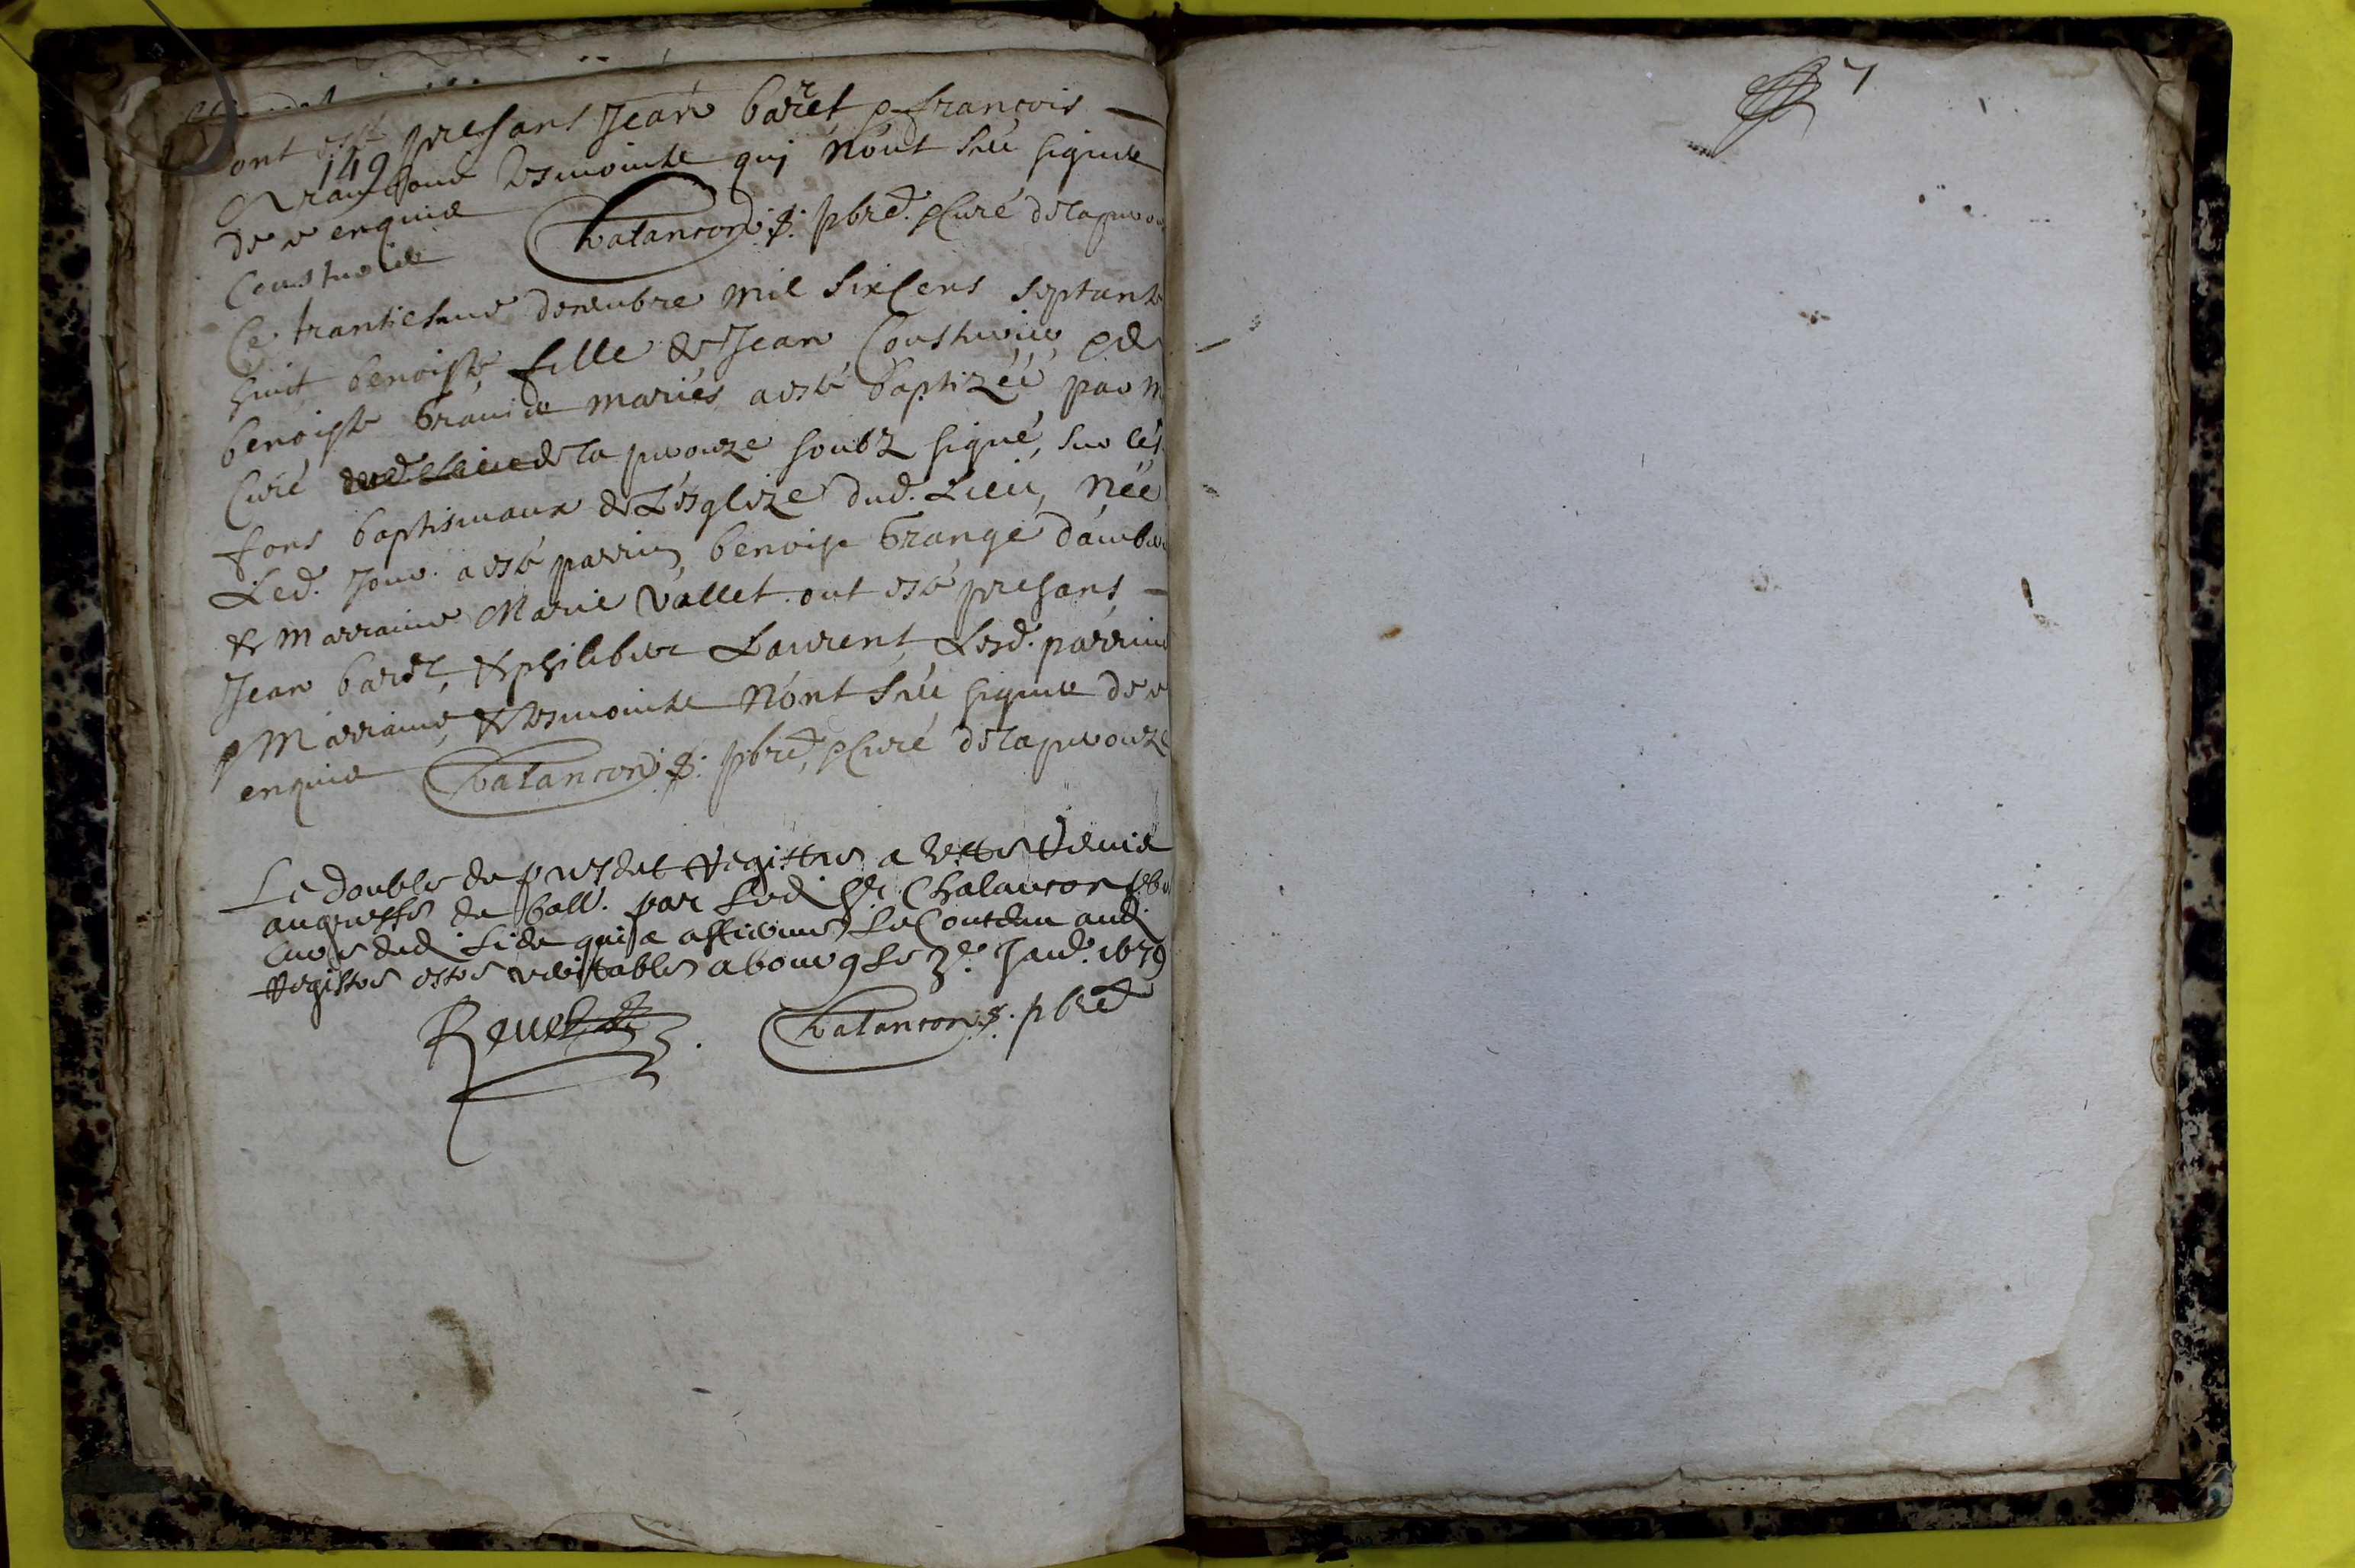 ont esté presans Jean baret & françois
149
tesmointz qui n'ont sceu signer
de ce enquis Chalancon p: pbre & Curé de la peirou
Cousturier
Ce trantiesme decembre mil six cens septante
huit benoiste fille de Jean Cousturier & de
benoiste Grand mariés a esté baptizéé par m
Curé de la peirouze soubz signé, sur les
fons baptismaux de L'esglize dud. Lieu, née
Led. Jour. a esté parrin benoist Grange d'amb
& marraine Marie Vallet. ont esté presans
Jean baret, & philibert Laurent, Lesd. parrin
& Marraine, & tesmointz n'ont sceu signer de ce
enquis Chalancon p: pbre, & Curé de la peirouze
Le double du present Registre a esté remis
au greffe du ball. par led. Sr. Chalancon pbr
Curé dud. Lieu qui a affirmé le Contenu aud.
Registre estre veritable a bourg le 3e. Janv. 1679
Revel. Chalancon p. pbre
7